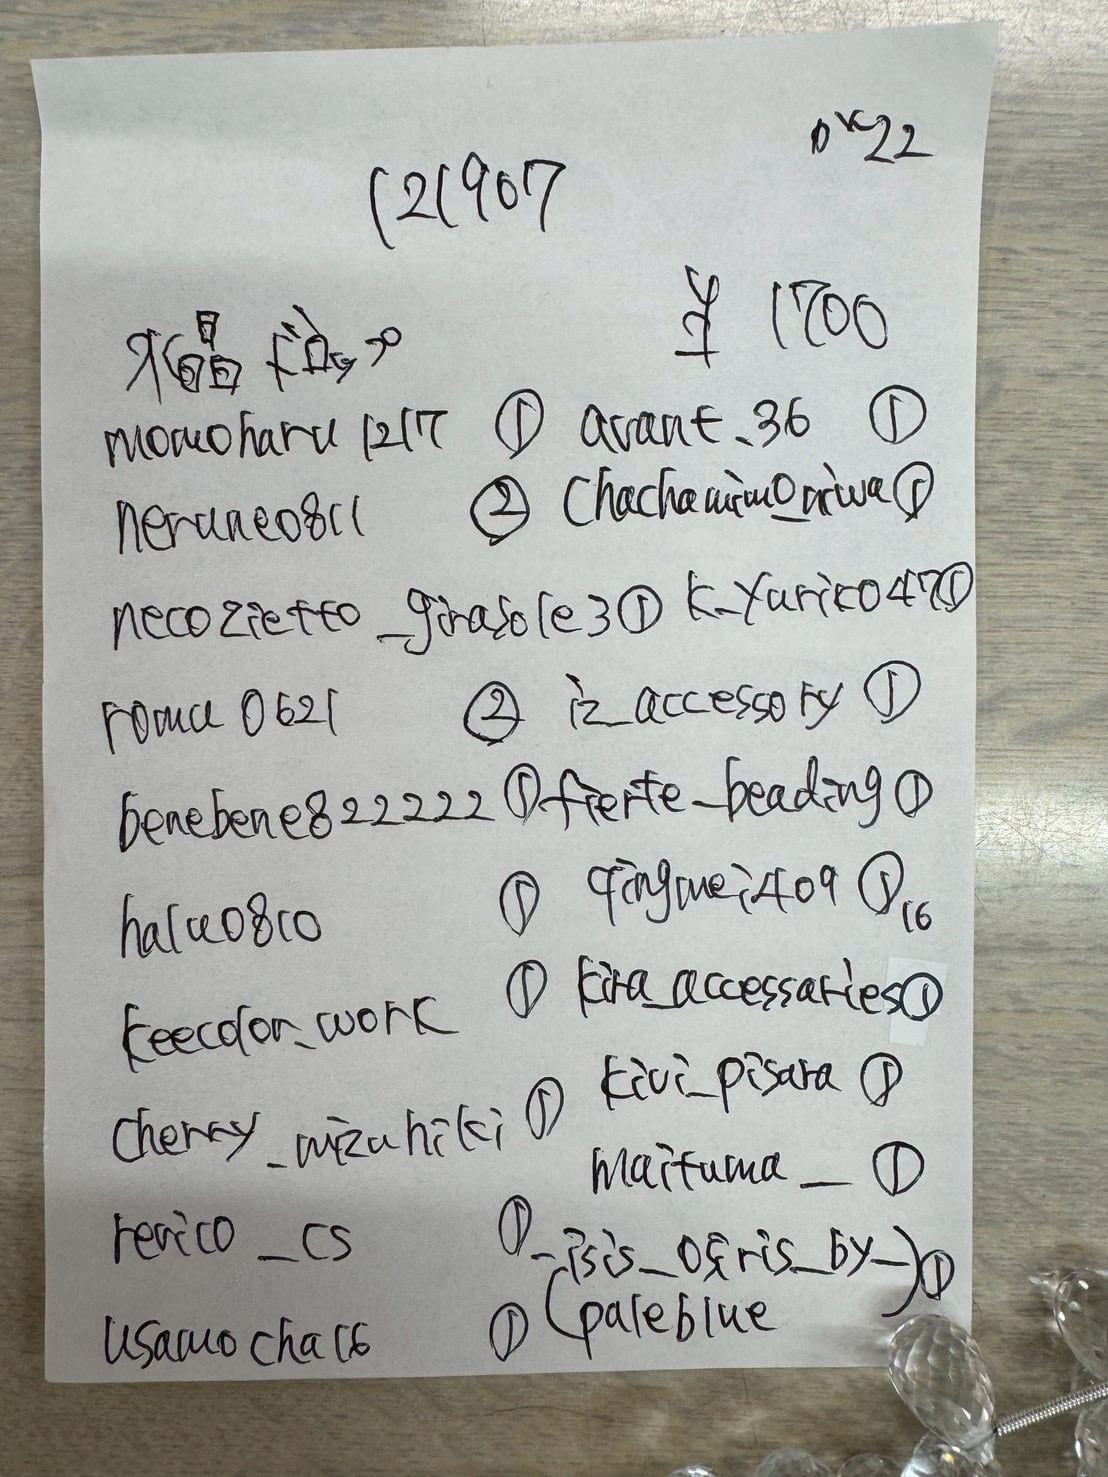 OK22
121907
水晶ドロップ
¥1700
momoharu1217 ①
avant_36 ①
neruneo811 ②
chachamimo_niwa ①
necozietto_girasole3 ①
k_yuriko47 ①
romu0621 ②
iz_accessory ①
benebene822222 ①
fierte_beading ①
halu0810 ①
qingmei409 ①
16
keecolor_work ①
kira_accessaries ①
cherry_mizuhiki ①
kivi_pisara ①
maifuma_ ①
revico_cs ①
_isis_osiris_by_ ①
(paleblue)
usamocha16 ①